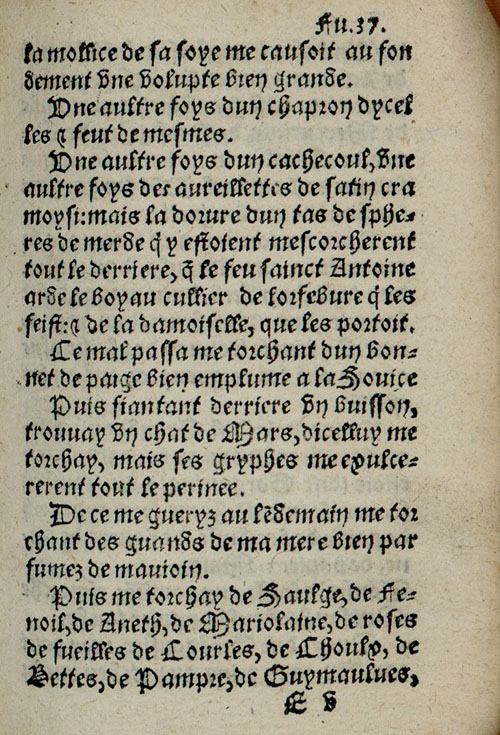 Fu.37.
la mollice de sa soye me causoit au fon
dement vne volupte bien grande.
Vne aultre foys dun chapron dycel
les & feut de mesmes.
Vne aultre foys dun cachecoul, vne
aultre foys des aureillettes de satin cra
moysi: mais la dorure dun tas de sphe-
res de merde q̃ y estoient mescorcherent
tout le derriere, q̃ le feu sainct Antoine
arde le boyau cullier de lorfebure q̃ les
feist: & de la damoiselle, que les portoit.
Ce mal passa me torchant dun bon-
net de paige bien emplume a la Souice
Puis fiantant derriere vn buisson,
trouuay vn chat de Mars, dicelluy me
torchay, mais ses gryphes me exulce-
rerent tout le perinee.
De ce me gueryz au lẽdemain me tor
chant des guands de ma mere bien par
fumez de mauioin.
Puis me torchay de Saulge, de Fe-
noil, de Aneth, de Mariolaine, de roses
de fueilles de Courles, de Choulx, de
Bettes, de Pampre, de Guymaulues,
E v